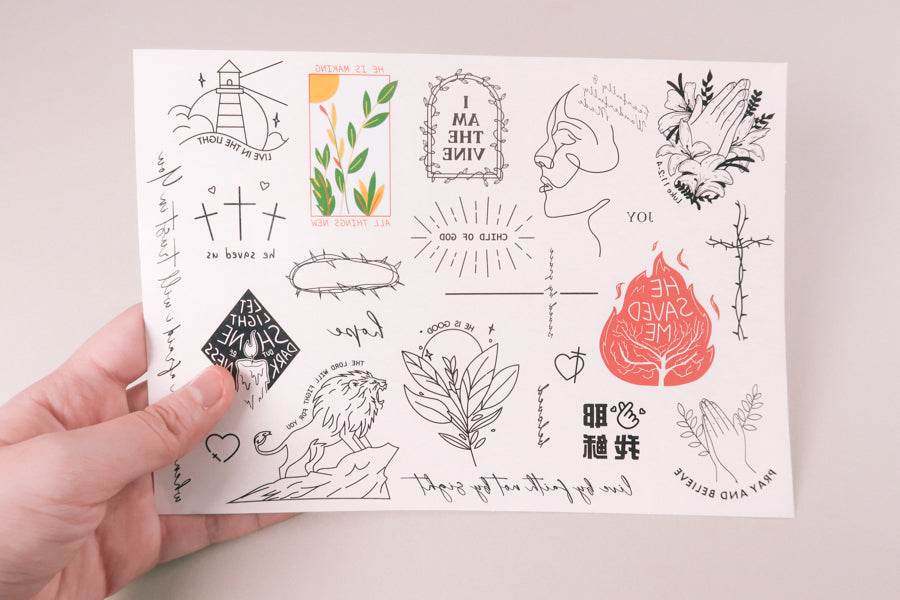 LIVE IN THE LIGHT
HE IS MAKING
ALL THINGS NEW
I
AM
THE
VINE
Fearfully &
Wonderfully
Made
Luke 11:2-4
he saved us
CHILD OF GOD
JOY
HE
SAVED
ME
LET
LIGHT
SHINE
OUT OF
DARKNESS
hope
HE IS GOOD
THE LORD WILL FIGHT FOR YOU
耶穌
我
PRAY AND BELIEVE
live by faith not by sight
when
afraid I will trust in You